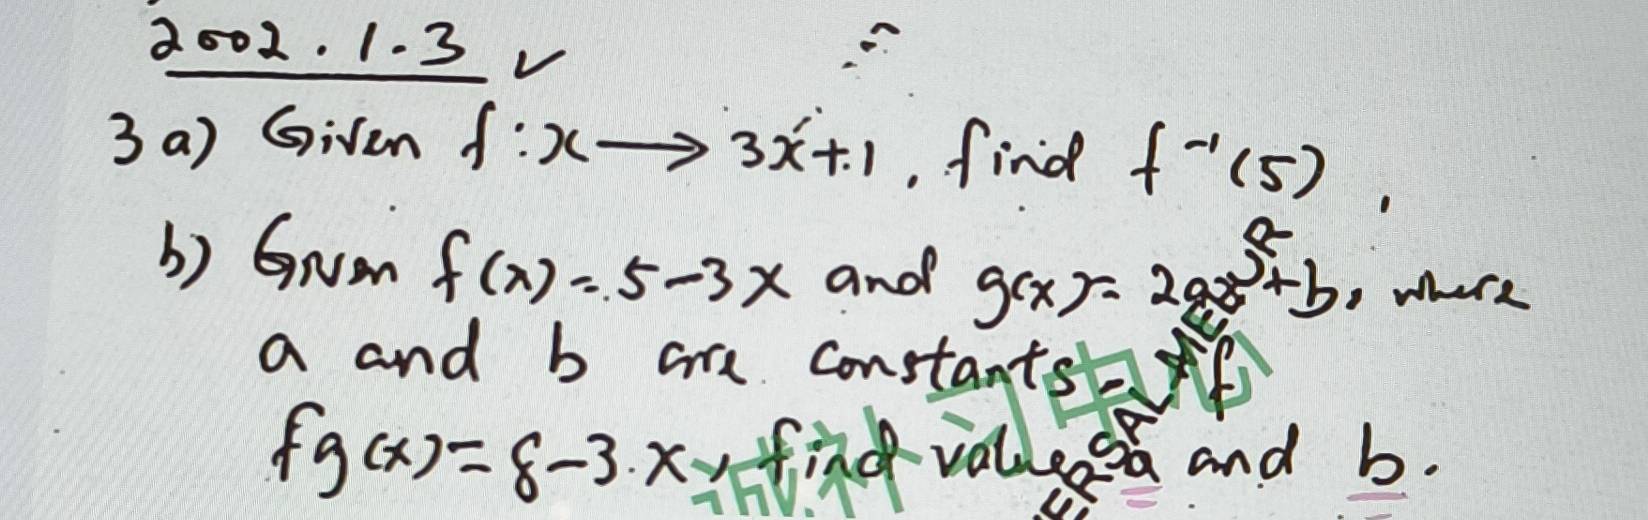 2002.1.3 ✓
3 a) Given f : x → 3x+1, find f⁻¹(5).
b) Given f(x) = 5-3x and g(x) = 2ax+b, where
a and b are constants. If
fg(x) = 8-3x, find values a and b.
诚补习中心
ERSAL MER